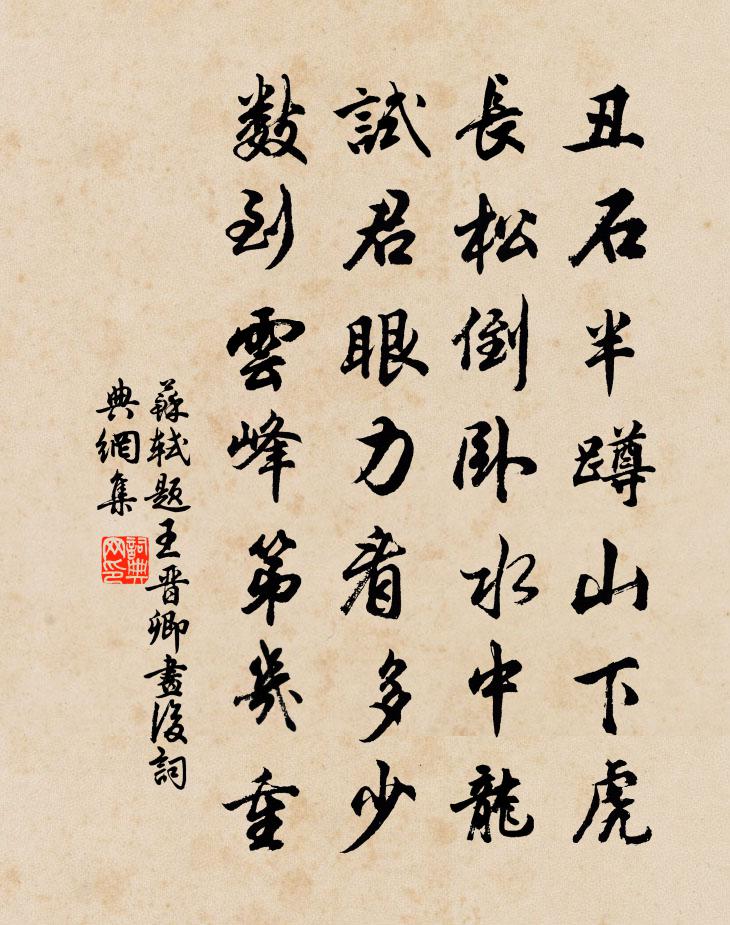 丑石半蹲山下虎
長松倒卧水中龍
試君眼力看多少
数到雲峰第幾重
蘇軾題王晋卿畫後詞
典網集
詞典
网印